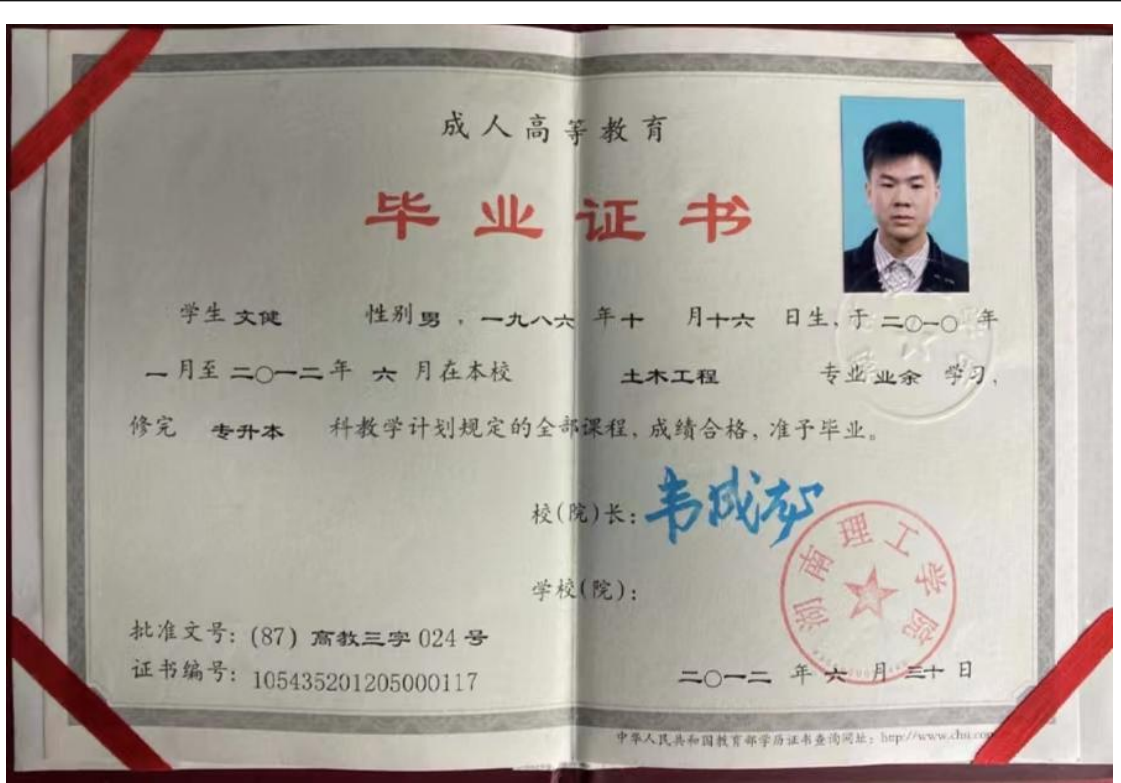 成人高等教育
毕业证书
学生 文健 性别 男 ，一九八六 年 十 月 十六 日生，于 二〇一〇 年
一 月至 二〇一二 年 六 月在本校 土木工程 专业 业余 学习，
修完 专升本 科教学计划规定的全部课程，成绩合格，准予毕业。
校(院)长：韦成龙
学校(院)：
湖南理工学院
批准文号：(87) 高教三字 024 号
证书编号：105435201205000117
二〇一二 年 六 月 三十 日
中华人民共和国教育部学历证书查询网址：http://www.chsi.com